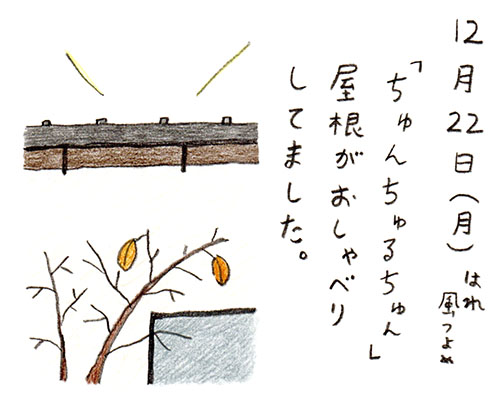 12月22日(月)はれ
風つよめ
「ちゅんちゅるちゅん」
屋根がおしゃべり
してました。